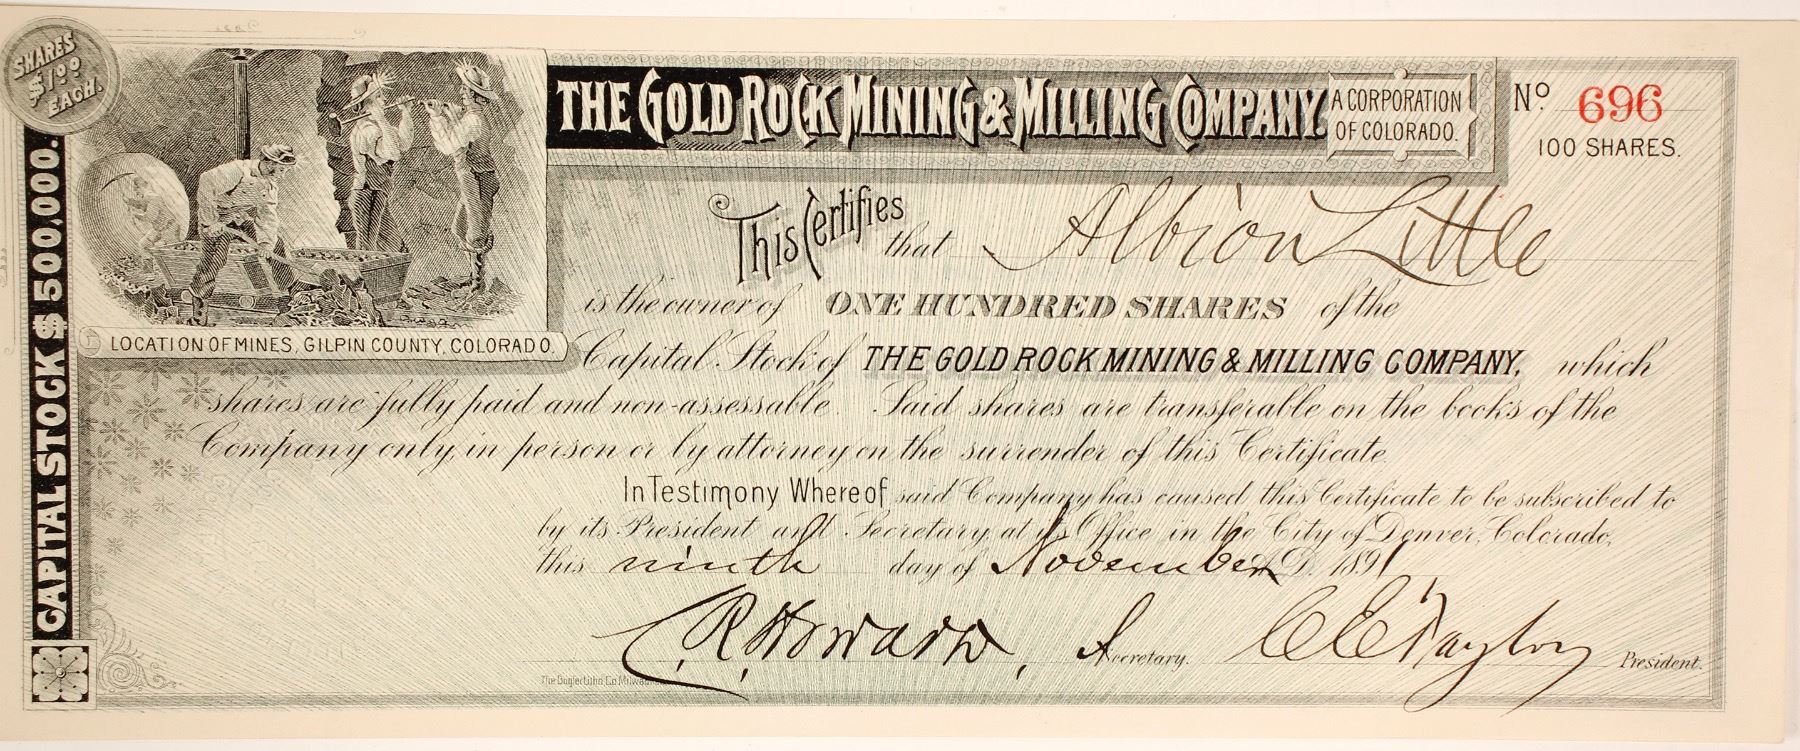 SHARES
$1.00
EACH.
CAPITAL STOCK $500,000.
THE GOLD ROCK MINING & MILLING COMPANY.
A CORPORATION
OF COLORADO.
No. 696
100 SHARES.
This Certifies that Albion Little
is the owner of ONE HUNDRED SHARES of the
LOCATION OF MINES, GILPIN COUNTY, COLORADO.
Capital Stock of THE GOLD ROCK MINING & MILLING COMPANY, which
shares are fully paid and non-assessable. Said shares are transferable on the books of the
Company only, in person or by attorney on the surrender of this Certificate.
In Testimony Whereof said Company has caused this Certificate to be subscribed to
by its President and Secretary, at its Office in the City of Denver, Colorado,
this ninth day of November A.D. 1891
C. R. Howard, Secretary. C E Taylor President.